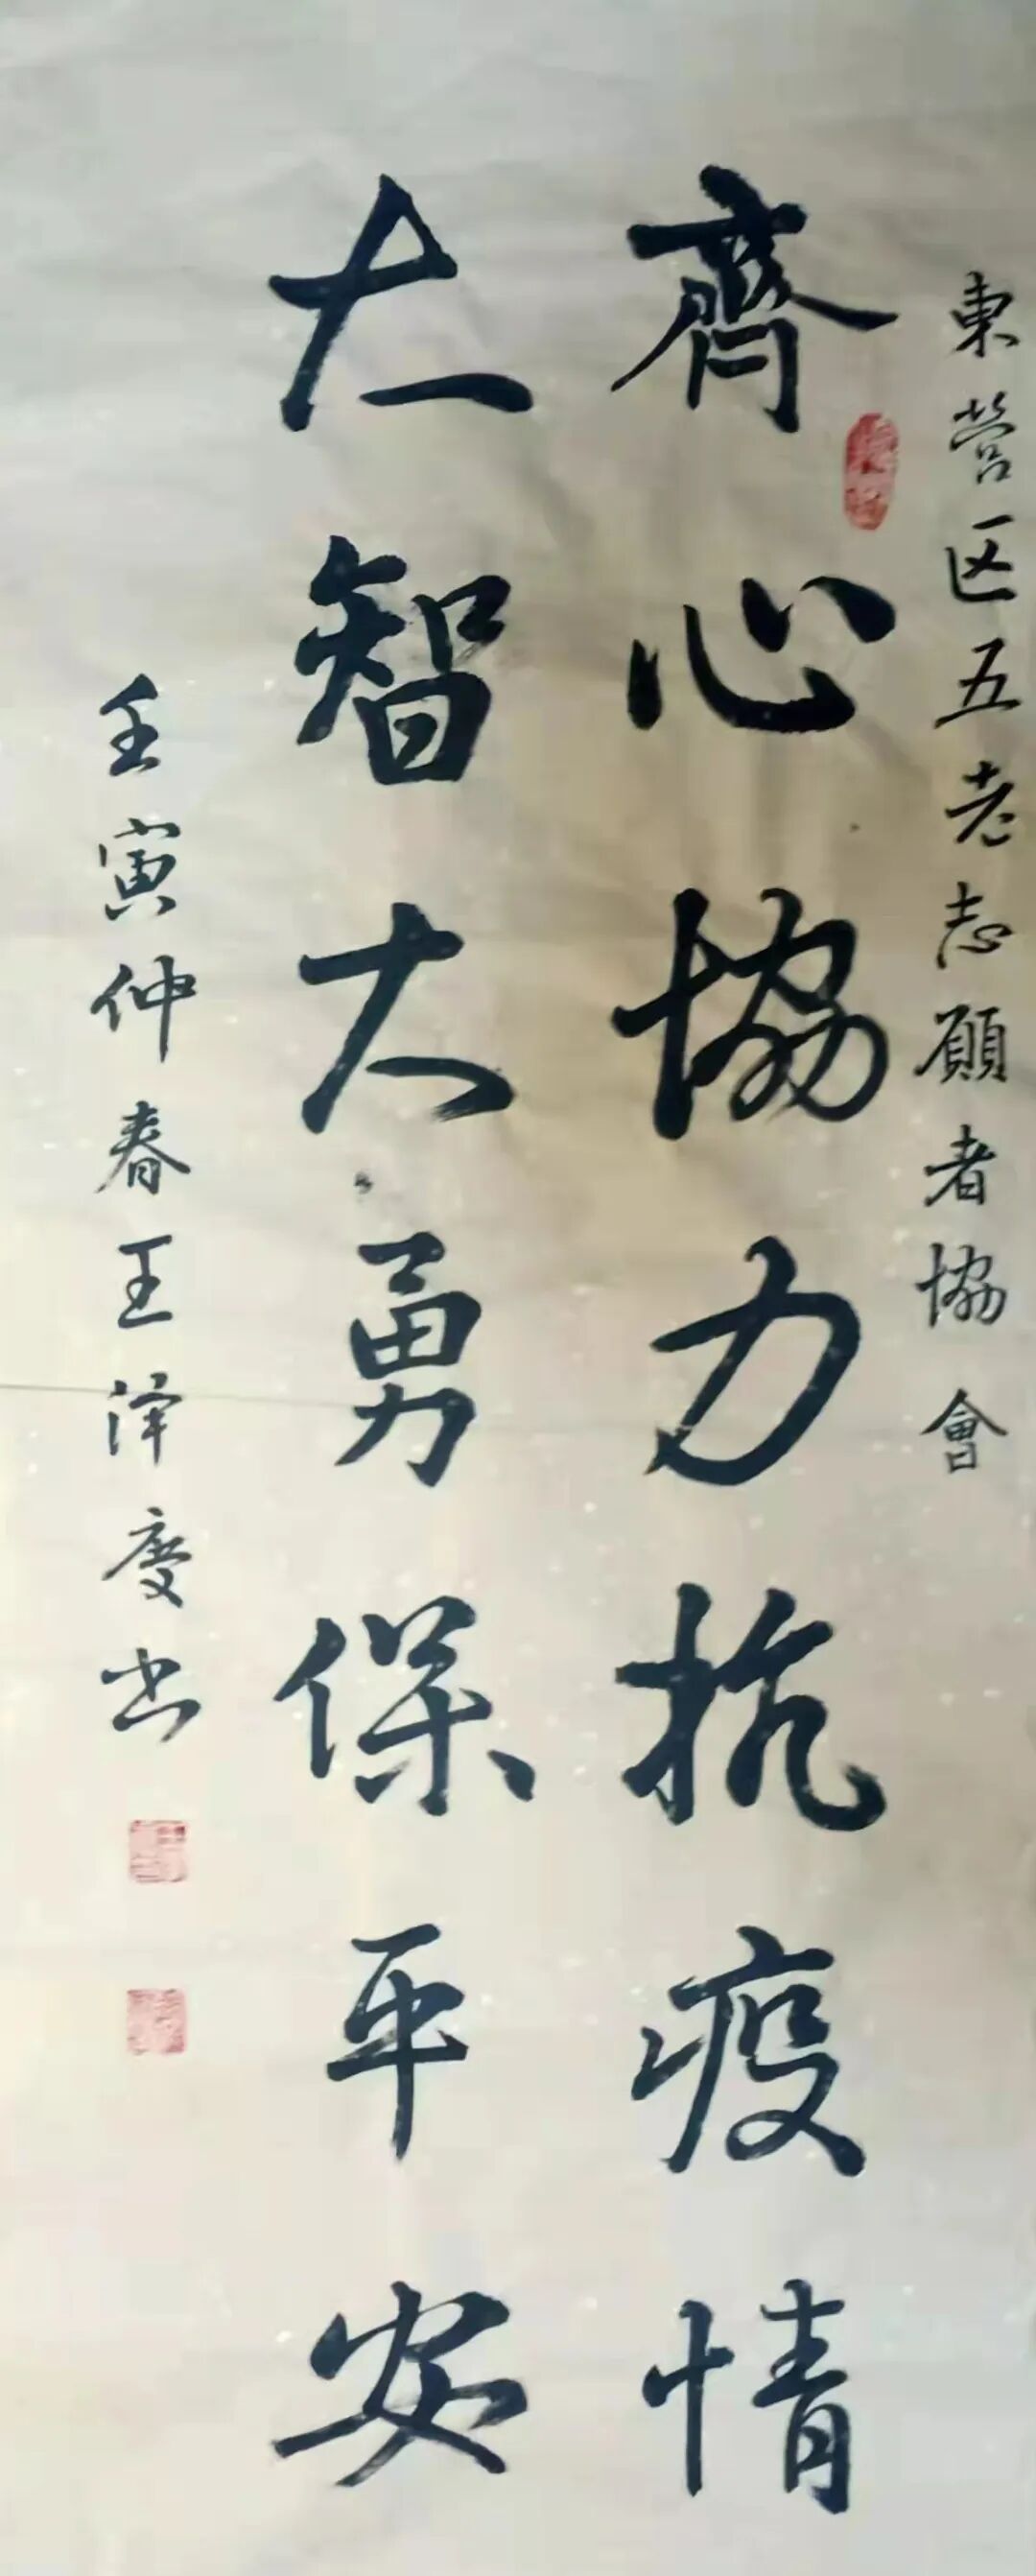 東营区五老志願者協會
齊心協力抗疫情
大智大勇保平安
壬寅仲春王泽慶书